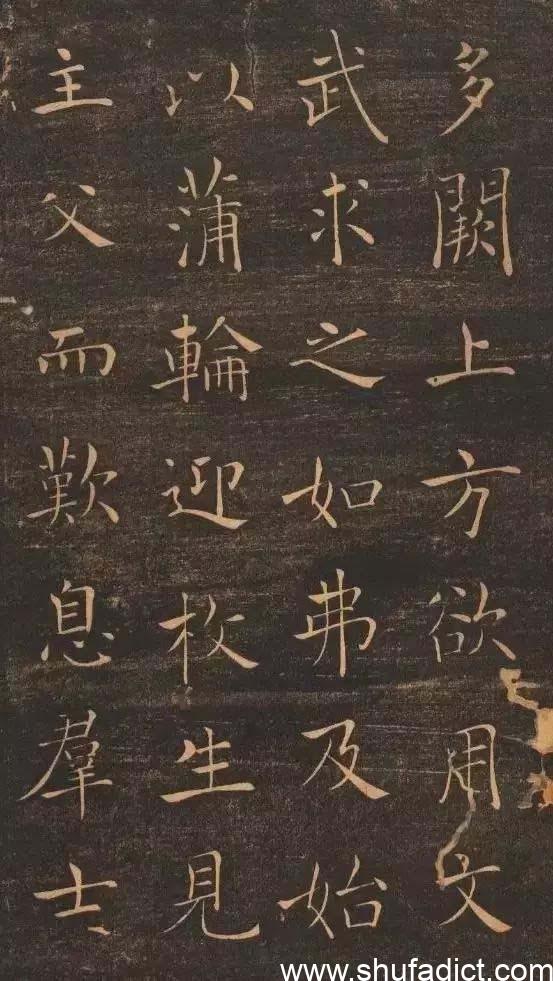 多闕上方欲用文
武求之如弗及始
以蒲輪迎枚生見
主父而歎息羣士
www.shufadict.com